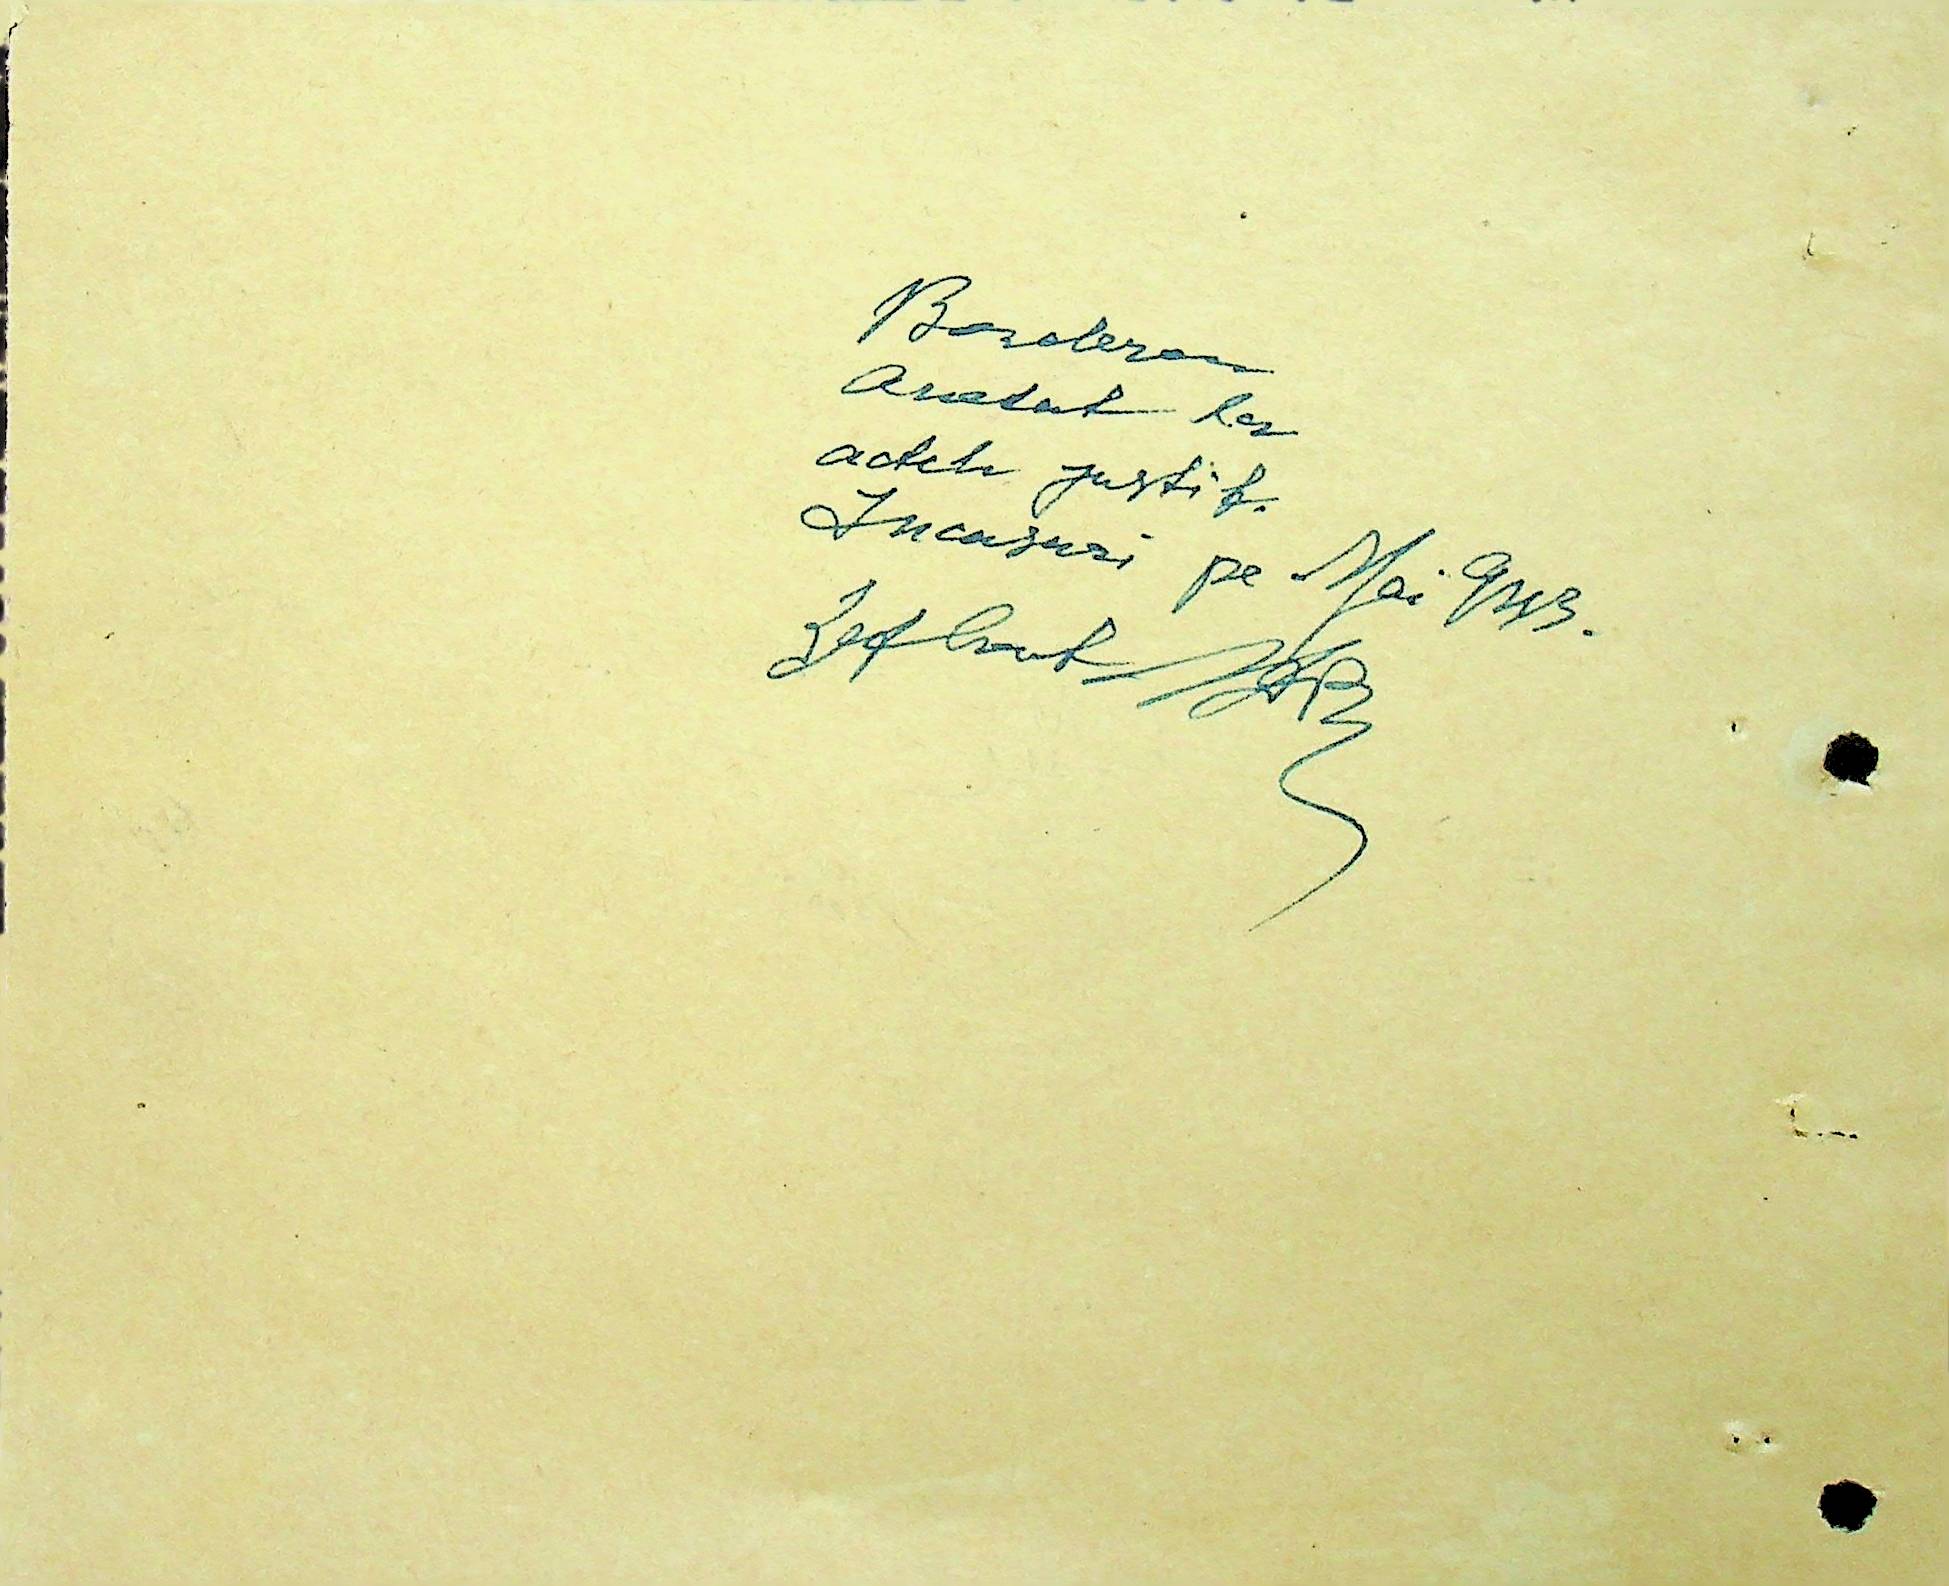 Borderou
Anexat la
actele justif.
Incasuri pe Mai 943.